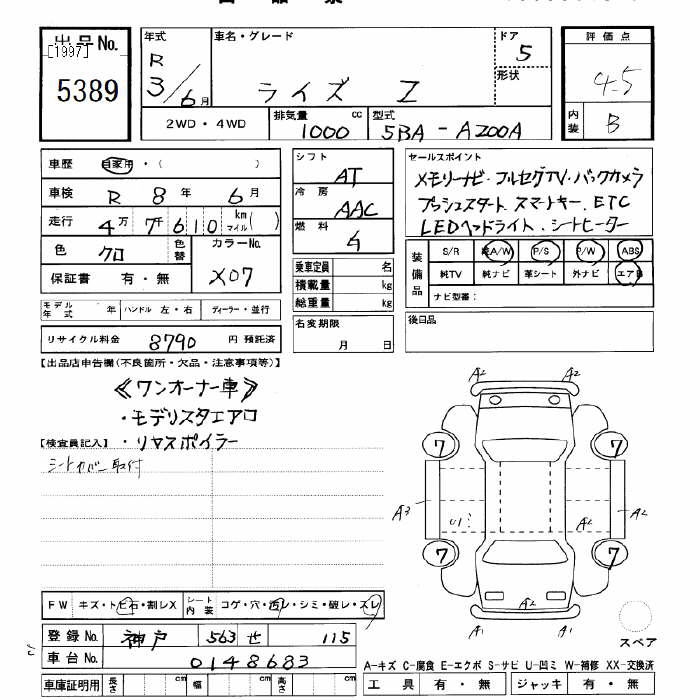 出品No.
[1997]
5389
年式
R
3/6月
車名・グレード
ライズ Z
ドア
5
形状
2WD・4WD
排気量
1000
cc
型式
5BA-A200A
評価点
4.5
内装
B
車歴
自家用・( )
車検 R 8年 6月
走行 4万 7千 610 km マイル( )
色 クロ
色替
カラーNo.
X07
保証書 有・無
モデル年式 年
ハンドル 左・右
ディーラー・並行
リサイクル料金 8790 円 預託済
シフト
AT
冷房
AAC
燃料
ガ
乗車定員 名
積載量 kg
総重量 kg
名変期限
月 日
セールスポイント
メモリーナビ・フルセグTV・バックカメラ
プッシュスタート スマートキー、ETC
LEDヘッドライト、シートヒーター
装備品
S/R A/W P/S P/W ABS
純TV 純ナビ 革シート 外ナビ エアB
ナビ型番:
後日品
【出品店申告欄(不良箇所・欠品・注意事項等)】
≪ワンオーナー車≫
・モデリスタエアロ
・リヤスポイラー
【検査員記入】
シートカバー取付
A2 A2
7 7
A3 A2
U1 A2
7 7
A2
A1 A1
スペア
FW キズ・トビ石・割レX
シート内装 コゲ・穴・切レ・シミ・破レ・スレ
登録No. 神戸 563 せ 115
車台No. 0148683
車庫証明用 長さ cm 幅 cm 高さ cm
A-キズ C-腐食 E-エクボ S-サビ U-凹ミ W-補修 XX-交換済
工具 有・無 ジャッキ 有・無